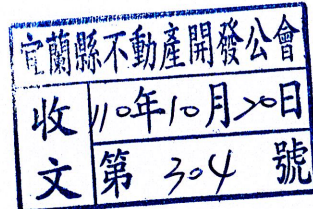 宜蘭縣不動產開發公會
收文
110年10月20日
第304號